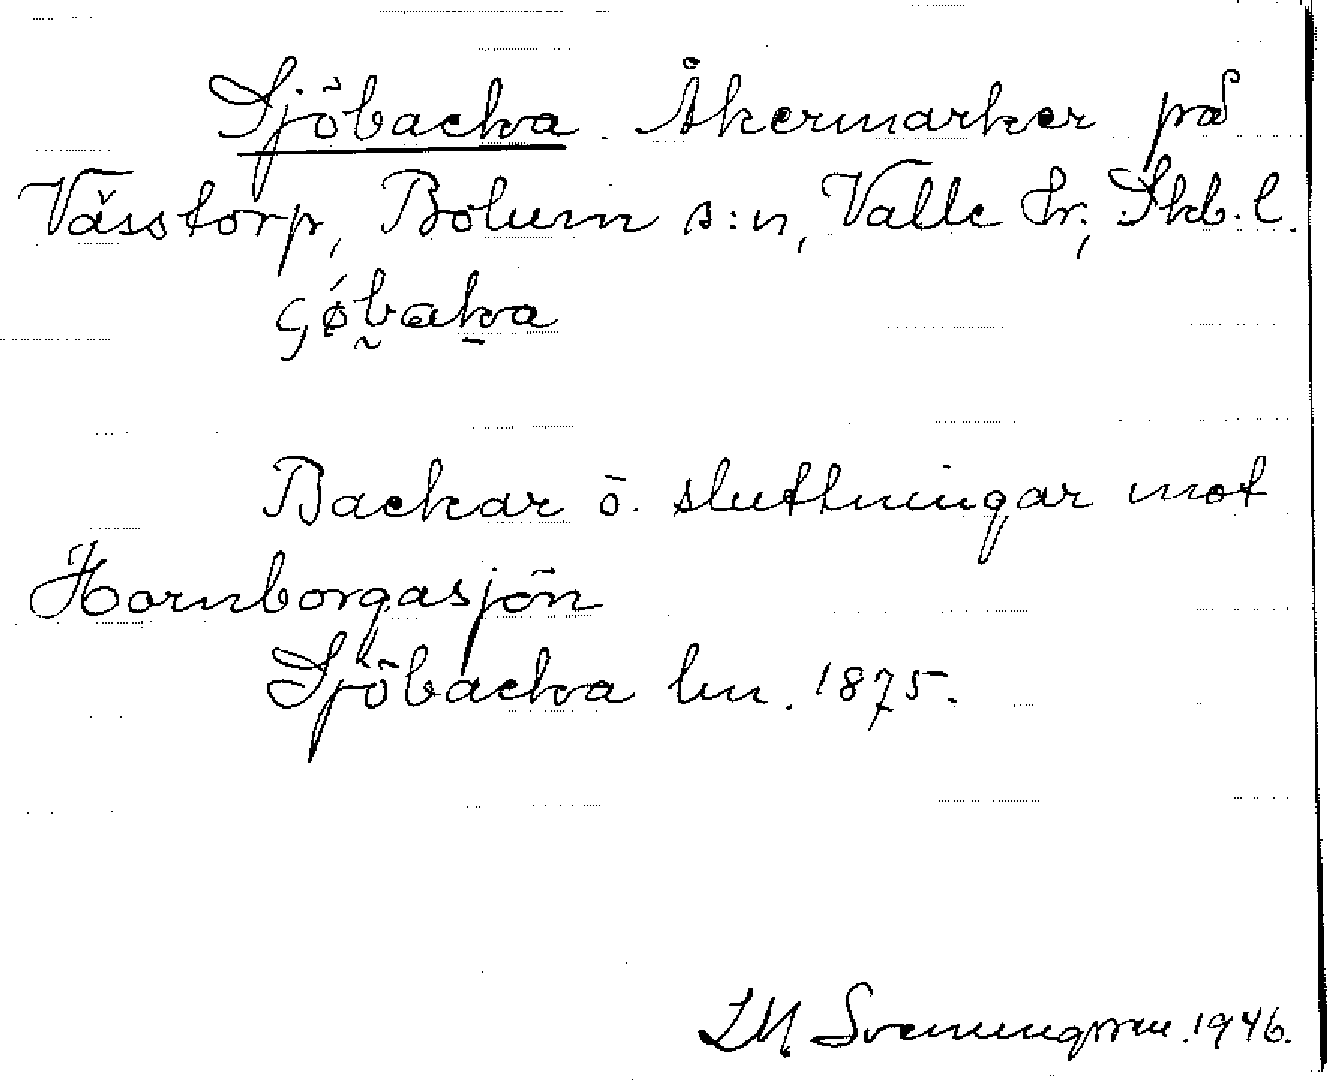 Sjöbacka. Åkermarker på
Vässtorp, Bolum s:n, Valle hr; Skb. l.
Backar o. sluttningar mot
Hornborgasjön
Sjöbacka lm. 1875.
Svenungsson. 1946.